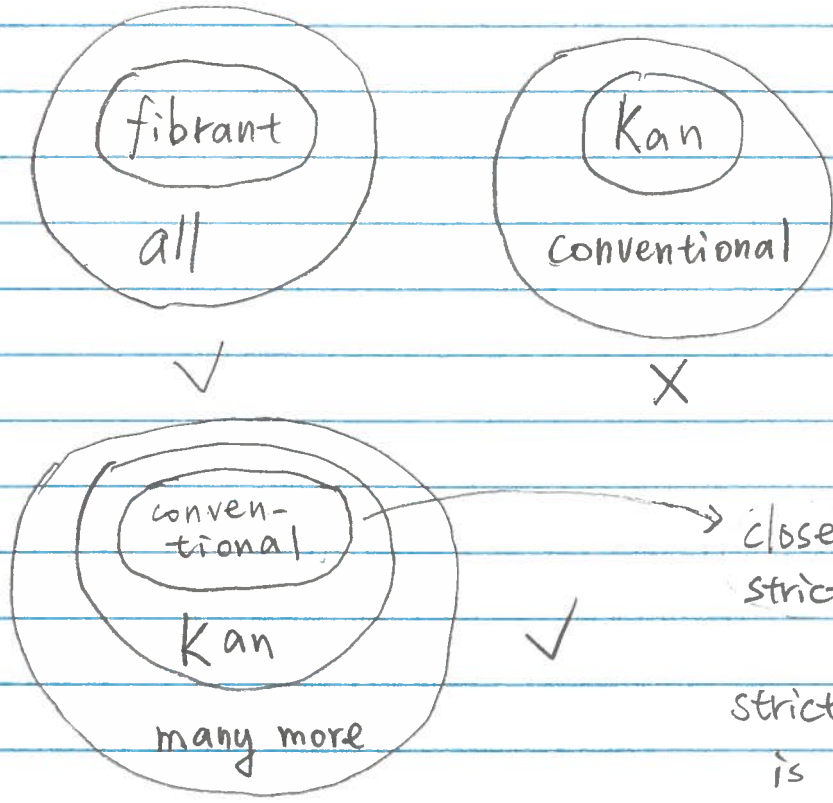 fibrant
all
Kan
conventional
✓
X
conven-
tional
Kan
many more
✓
close
strict
strict
is